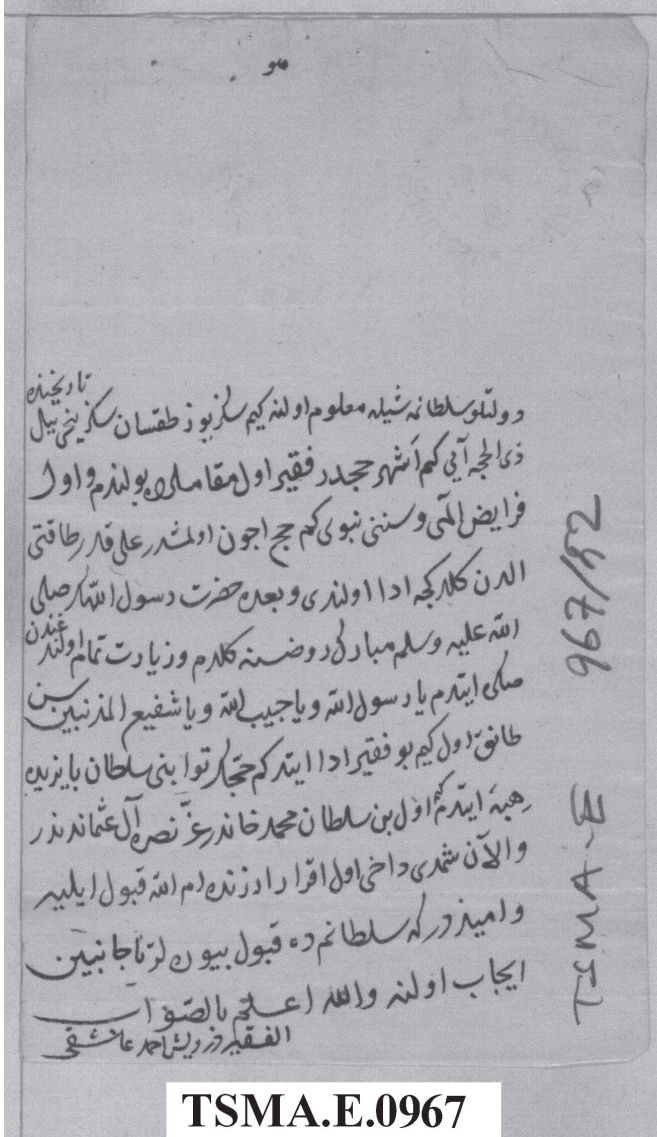 هو
دولتلو سلطانمه شیله معلوم اولنه کیم سکز یوز طقسان سکزینجی ییل تاریخنده
ذی الحجه آیی کم اشهر حجدر فقیر اول مقاملره بولندم و اول
فرایض الهی و سنن نبوی کم حج اچون اولمشدر علی قدر طاقتی
الدن کلدکجه ادا اولندی و بعده حضرت رسول اللهک صلی
الله علیه و سلم مبارک روضسنه کلدم و زیارت تمام اولندغندن
صکره ایتدم یا رسول الله و یا حبیب الله و یا شفیع المذنبین سن
طانق اول کیم بو فقیر ادا ایتدکم حجک ثوابنی سلطان بایزیده
هبه ایتدم کیم اول بن سلطان محمد خاندر عز نصره آل عثماندندر
و الآن شمدی داخی اول اقرار اوزنده ام الله قبول ایلیه
و امیذدر که سلطانم ده قبول بیوره لر تا جانبین
ایجاب اولنه والله اعلم بالصواب
الفقیر درویش احمد عاشقی
967/52
TSMA-E
TSMA.E.0967